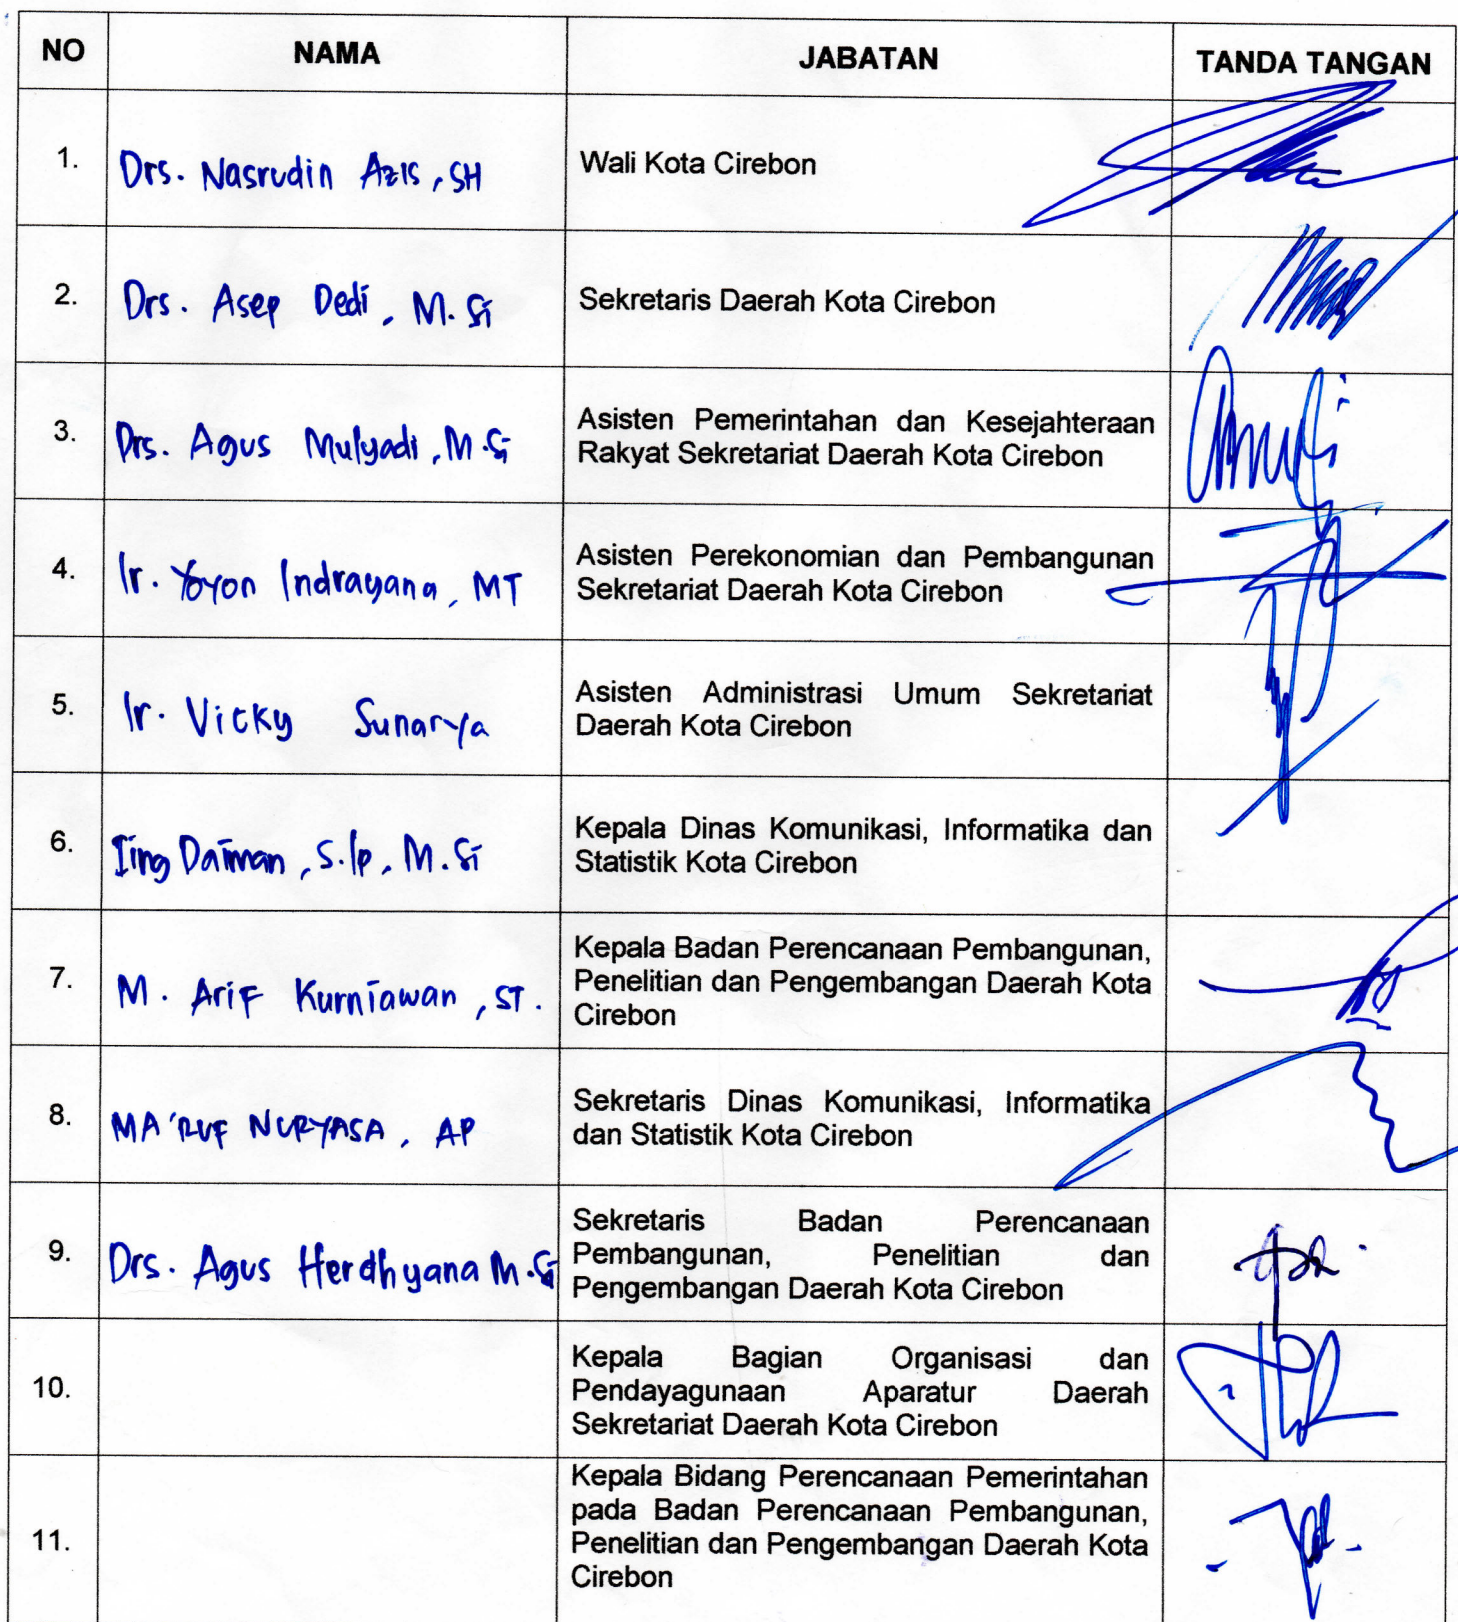 NO NAMA JABATAN TANDA TANGAN
1. Drs. Nasrudin Azis, SH Wali Kota Cirebon
2. Drs. Asep Dedi, M.Si Sekretaris Daerah Kota Cirebon
3. Drs. Agus Mulyadi, M.Si Asisten Pemerintahan dan Kesejahteraan
Rakyat Sekretariat Daerah Kota Cirebon
4. Ir. Yoyon Indrayana, MT Asisten Perekonomian dan Pembangunan
Sekretariat Daerah Kota Cirebon
5. Ir. Vicky Sunarya Asisten Administrasi Umum Sekretariat
Daerah Kota Cirebon
6. Iing Daiman, S.Ip, M.Si Kepala Dinas Komunikasi, Informatika dan
Statistik Kota Cirebon
7. M. Arif Kurniawan, ST. Kepala Badan Perencanaan Pembangunan,
Penelitian dan Pengembangan Daerah Kota
Cirebon
8. MA'RUF NURYASA, AP Sekretaris Dinas Komunikasi, Informatika
dan Statistik Kota Cirebon
9. Drs. Agus Herdhyana M.Si Sekretaris Badan Perencanaan
Pembangunan, Penelitian dan
Pengembangan Daerah Kota Cirebon
10. Kepala Bagian Organisasi dan
Pendayagunaan Aparatur Daerah
Sekretariat Daerah Kota Cirebon
11. Kepala Bidang Perencanaan Pemerintahan
pada Badan Perencanaan Pembangunan,
Penelitian dan Pengembangan Daerah Kota
Cirebon